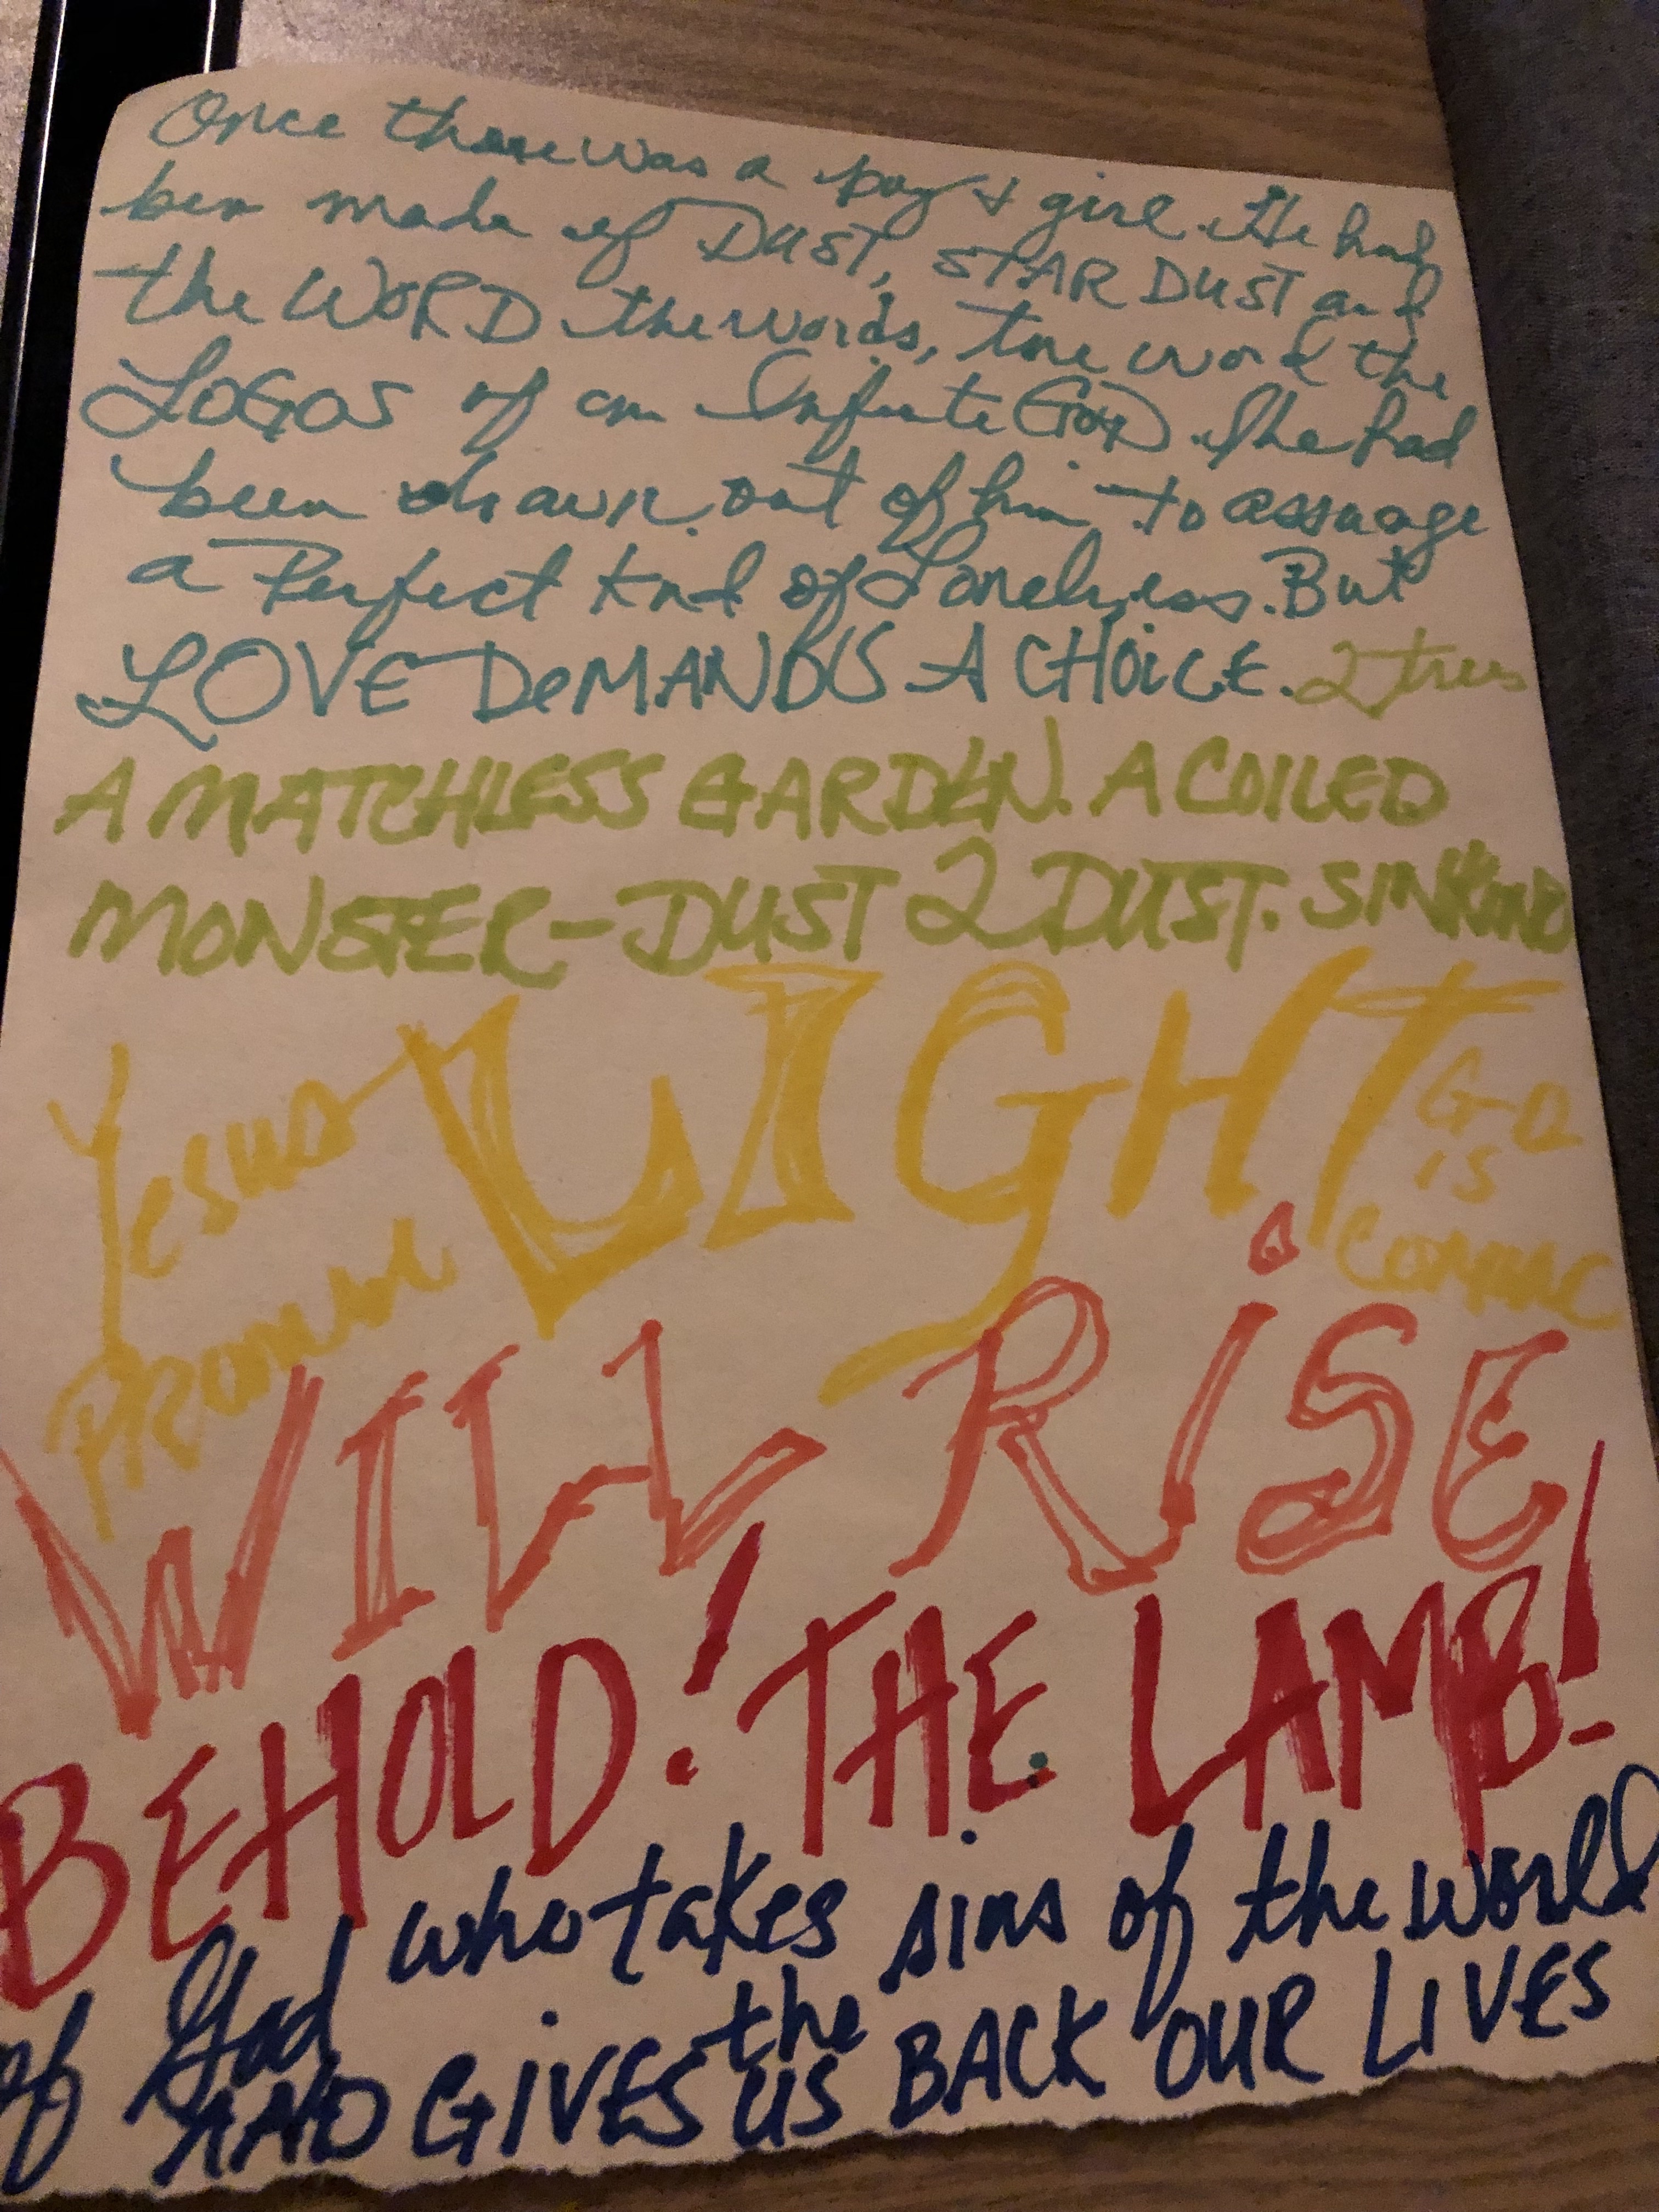 Once there was a boy & girl. He had
ben made of DUST, STAR DUST and
the WORD the words, the word the
LOGOS of an Infinite GOD. She had
been drawn out of him to assuage
a Perfect kind of Loneliness. But
LOVE DeMANDS A CHOiCE. 2 trees
A MATCHLESS GARDEN. A COILED
MONSTER - DUST 2 DUST. SIN
LIGHT
Yesua
G-D
IS
WILL RiSE
BEHOLD! THE LAMB!
of God who takes sins of the world
the
AND GIVES US BACK OUR LIVES